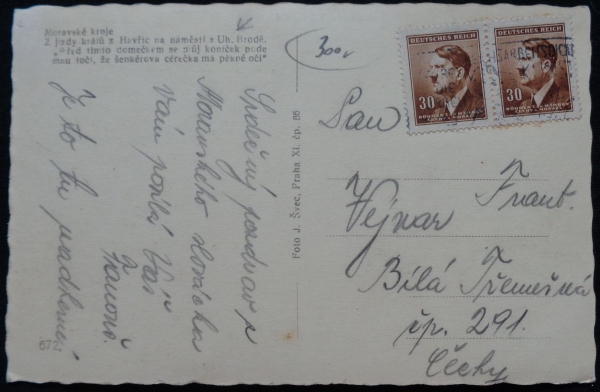 Moravské kroje
Z jízdy králů z Havřic na náměstí v Uh. Brodě.
"Před tímto domečkem se můj koníček pode
mnu točí, že šenkérova cérečka má pěkné oči"
300,-
Srdečný pozdrav z
Moravského slovácka
Vám posílá Váš
Je to tu nádherné
672
Foto J. Švec, Praha XI. čp. 88
DEUTSCHES REICH
30
BÖHMEN UND MÄHREN
ČECHY A MORAVA
DEUTSCHES REICH
30
BÖHMEN UND MÄHREN
ČECHY A MORAVA
Pan
Frant.
Vejnar
Bílá Třemešná
čp. 291.
Čechy